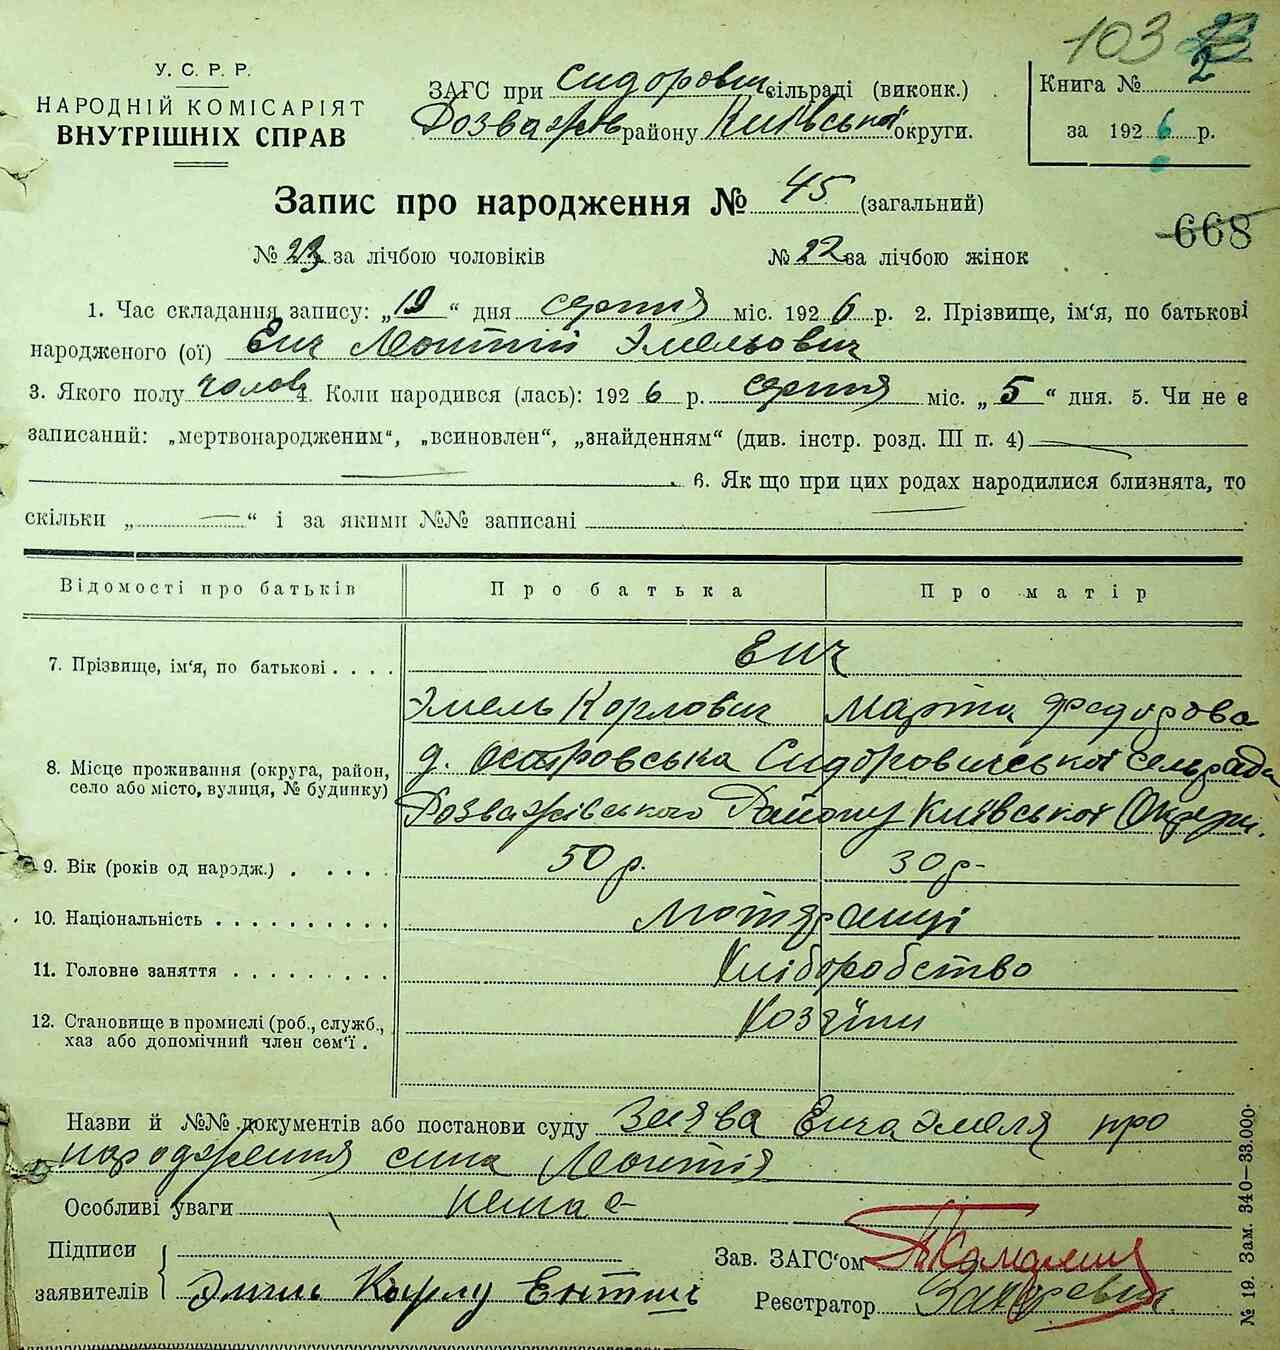 103 2
У. С. Р. Р.
НАРОДНІЙ КОМІСАРІЯТ
ВНУТРІШНІХ СПРАВ
ЗАГС при Сидорович сільраді (виконк.)
Розважів району Київської округи.
Книга №
за 1926 р.
Запис про народження № 45 (загальний)
668
№ 23 за лічбою чоловіків № 22 за лічбою жінок
1. Час складання запису: „19“ дня серпня міс. 1926 р. 2. Прізвище, ім‘я, по батькові
народженого (ої) Енч Эмельович
3. Якого полу чолов 4. Коли народився (лась): 1926 р. серпня міс. „5“ дня. 5. Чи не є
записаний: „мертвонародженим“, „всиновлен“, „знайденням“ (див. інстр. розд. III п. 4)
6. Як що при цих родах народилися близнята, то
скільки „ “ і за якими №№ записані
Відомості про батьків Про батька Про матір
7. Прізвище, ім‘я, по батькові Енч
Эмель Карлович Марта Федорова
8. Місце проживання (округа, район, село або місто, вулиця, № будинку) д. Островська Сидоровичської сельрада
Розважівського Району Київської Округи.
9. Вік (років од народж.) 50 р. 30 р.
10. Національність
11. Головне заняття Хліборобство
12. Становище в промислі (роб., служб., хаз або допомічний член сем‘ї. Хозяїни
Назви й №№ документів або постанови суду Заява Енча Эмеля про
народження сина
Особливі уваги немає
Підписи
заявителів
Зав. ЗАГС‘ом
Реєстратор
№ 19. Зам. 340—33.000.